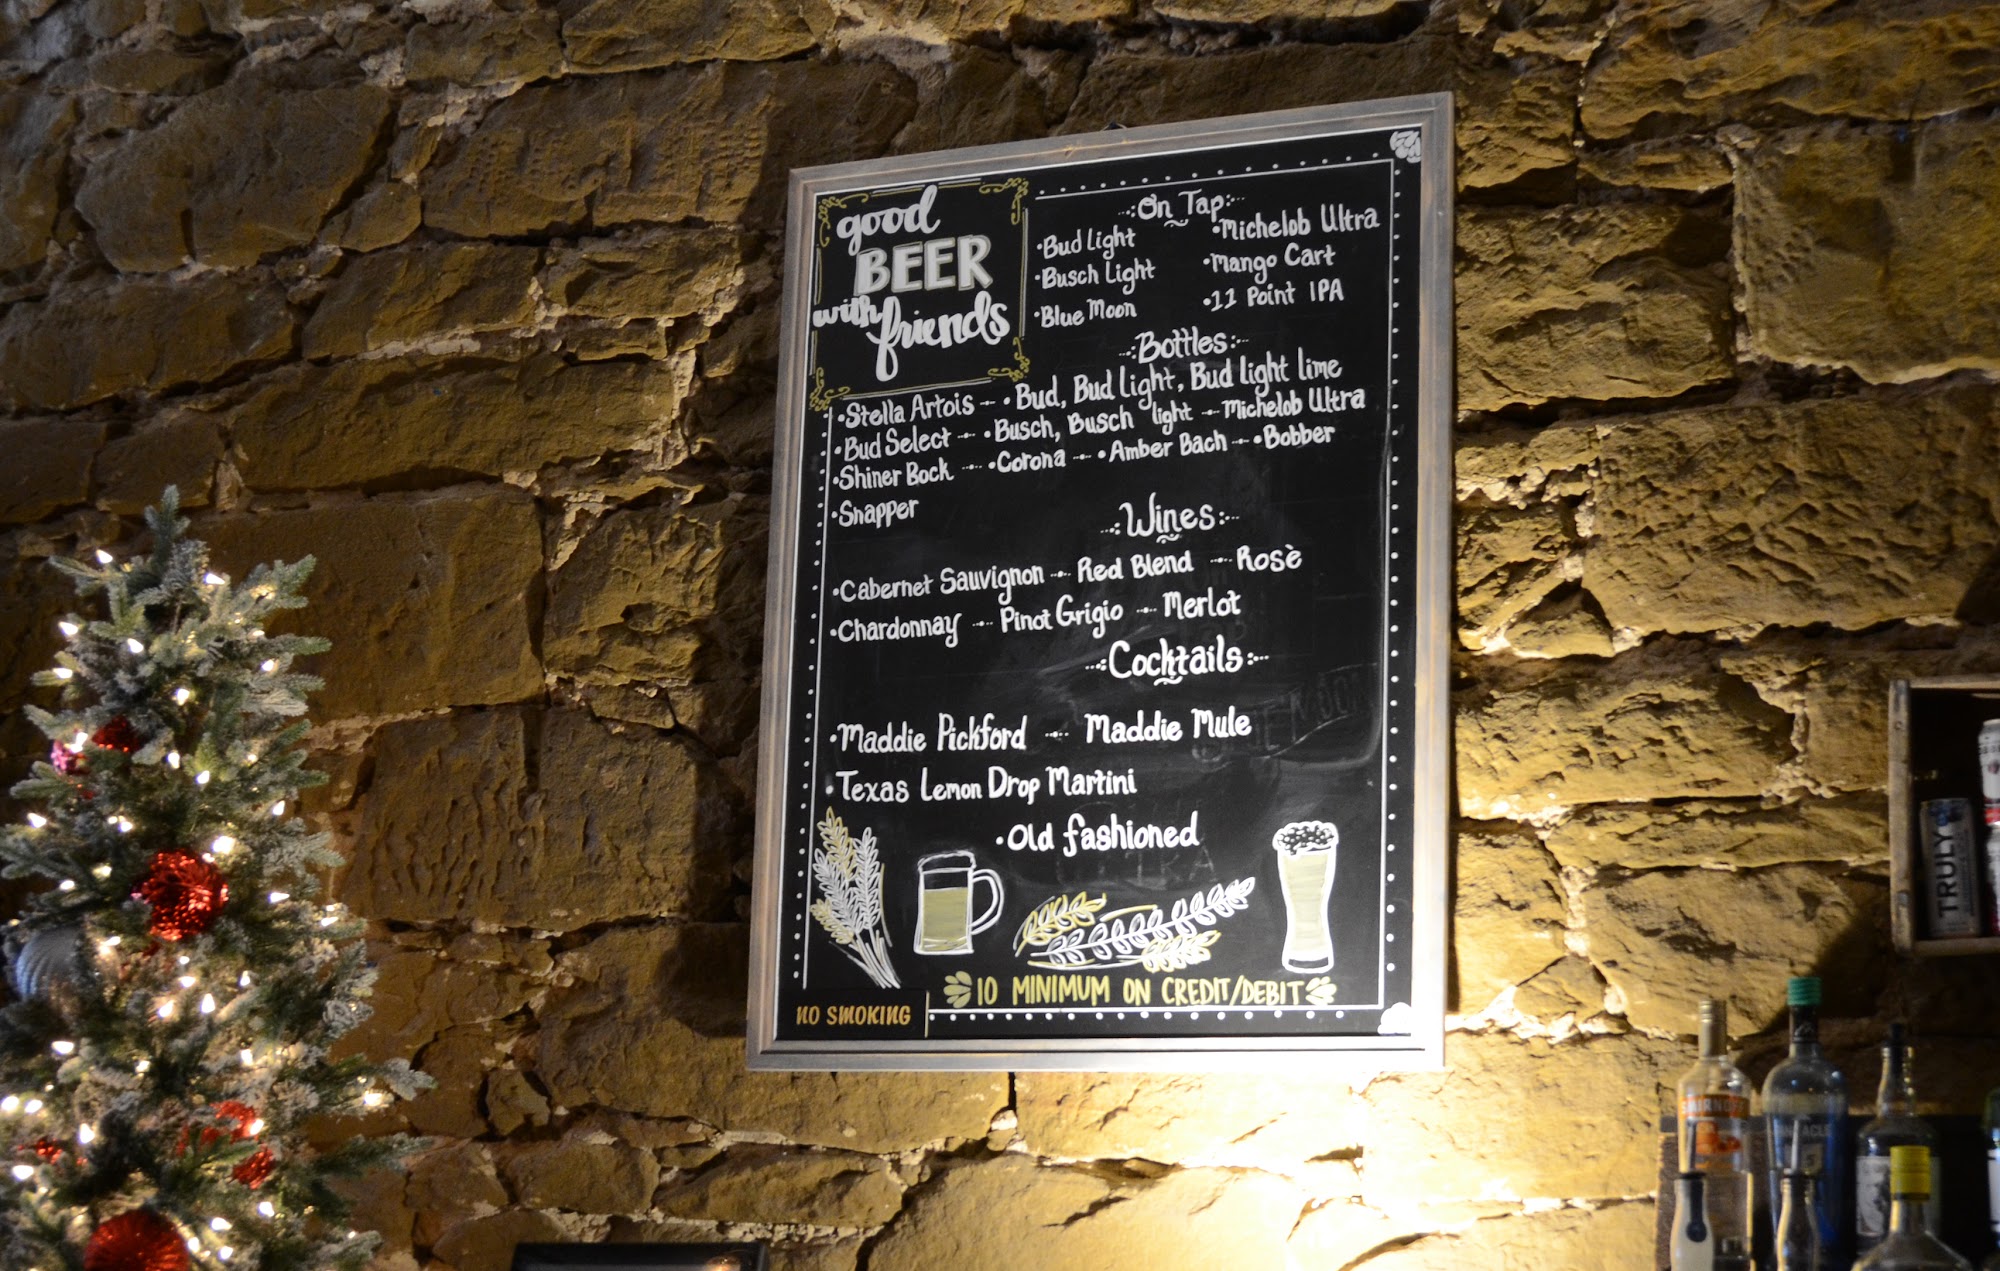 good
BEER
with
friends
On Tap
•Bud Light •Michelob Ultra
•Busch Light •Mango Cart
•Blue Moon •11 Point IPA
Bottles
•Stella Artois •Bud, Bud Light, Bud light lime
•Bud Select •Busch, Busch light Michelob Ultra
•Shiner Bock •Corona •Amber Bach •Bobber
•Snapper
Wines
•Cabernet Sauvignon Red Blend Rosè
•Chardonnay Pinot Grigio Merlot
Cocktails
•Maddie Pickford Maddie Mule
•Texas Lemon Drop Martini
•Old fashioned
10 MINIMUM ON CREDIT/DEBIT
NO SMOKING
TRULY